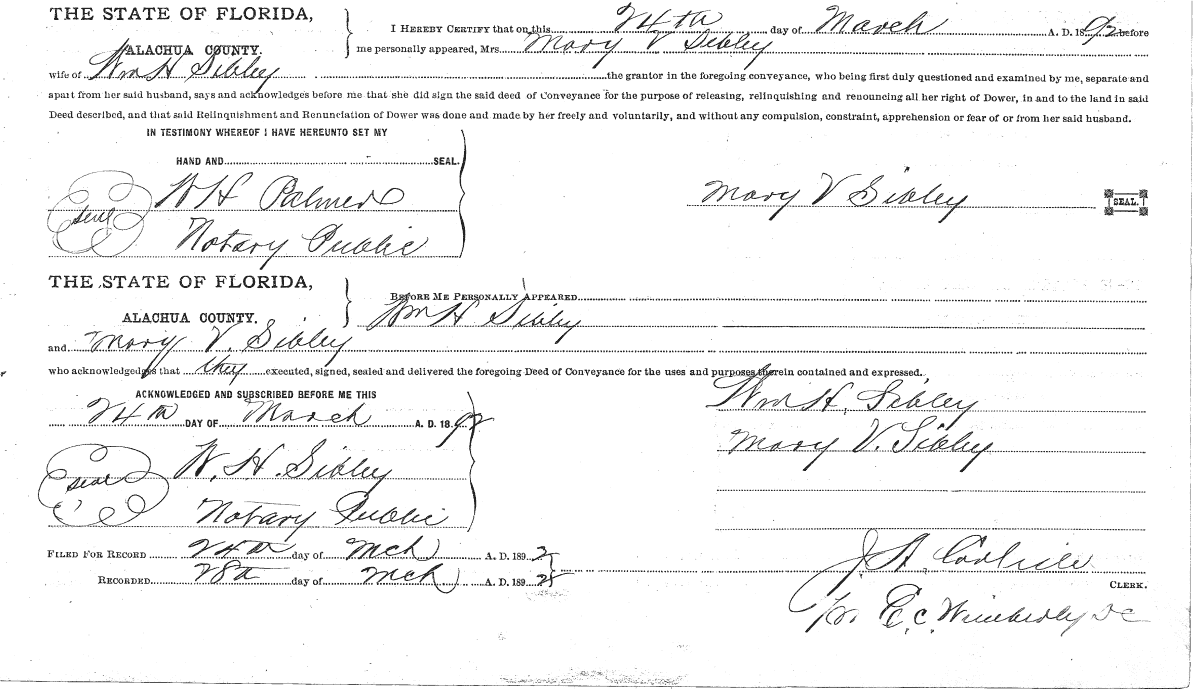 THE STATE OF FLORIDA,
ALACHUA COUNTY.
I HEREBY CERTIFY that on this 24th day of March A. D. 1892 before
me personally appeared, Mrs. Mary V Sibley
wife of Wm H Sibley the grantor in the foregoing conveyance, who being first duly questioned and examined by me, separate and
apart from her said husband, says and acknowledges before me that she did sign the said deed of Conveyance for the purpose of releasing, relinquishing and renouncing all her right of Dower, in and to the land in said
Deed described, and that said Relinquishment and Renunciation of Dower was done and made by her freely and voluntarily, and without any compulsion, constraint, apprehension or fear of or from her said husband.
IN TESTIMONY WHEREOF I HAVE HEREUNTO SET MY
HAND AND SEAL.
seal W H Palmer
Notary Public
Mary V Sibley SEAL.
THE STATE OF FLORIDA,
ALACHUA COUNTY.
BEFORE ME PERSONALLY APPEARED
Wm H Sibley
and Mary V. Sibley
who acknowledged that they executed, signed, sealed and delivered the foregoing Deed of Conveyance for the uses and purposes therein contained and expressed.
ACKNOWLEDGED AND SUBSCRIBED BEFORE ME THIS
24th DAY OF March A. D. 1892
seal W. H. Sibley
Notary Public
Wm H. Sibley
Mary V. Sibley
FILED FOR RECORD 24th day of Mch A. D. 1892
RECORDED 28th day of Mch A. D. 1892
J. A. Carlisle
CLERK.
Per E. C. Wimberly DC